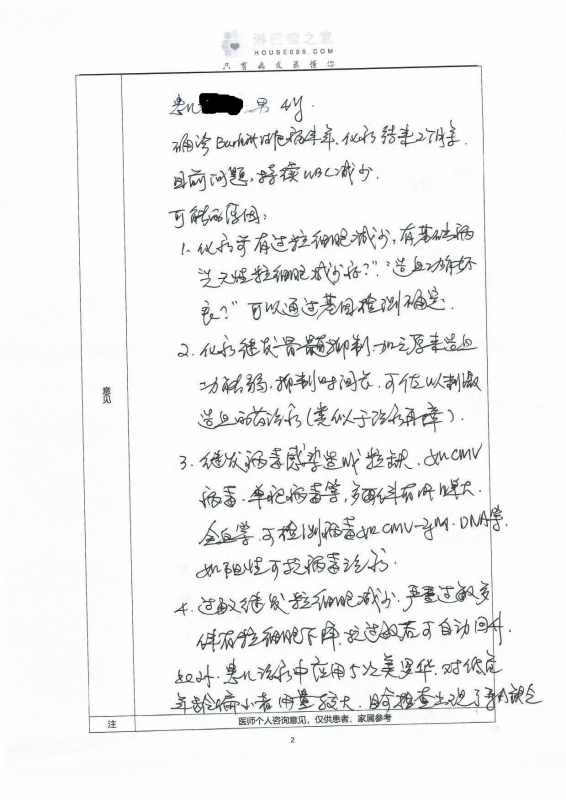 淋巴瘤之家
HOUSE086.COM
只有病友最懂你
患儿 男 4y.
确诊Burkitt 年, 化疗结束2个月余.
目前问题: 持续WBC减少.
可能的原因:
1. 化疗前有过粒细胞减少, 有基础病
先天性粒细胞减少症?" "造血功能坏
良?" 可以通过基因检测确定.
2. 化疗继发骨髓抑制, 加之原来造血
功能弱, 抑制时间长, 可 以刺激
造血的药治疗(类似于治疗再障).
3. 继发病毒感染造成粒缺, 如CMV
病毒, 单疱病毒等, 多 伴有肝脾大
可检测病毒如CMV-IgM, DNA等
如阳性可抗病毒治疗.
4. 过敏继发粒细胞减少, 严重过敏多
伴有粒细胞下降, 抗过敏后可自动回升.
另外, 患儿治疗中应用5次美罗华, 对
年龄偏小者用量较大, 目前检查出现了
意见
注
医师个人咨询意见，仅供患者、家属参考
2